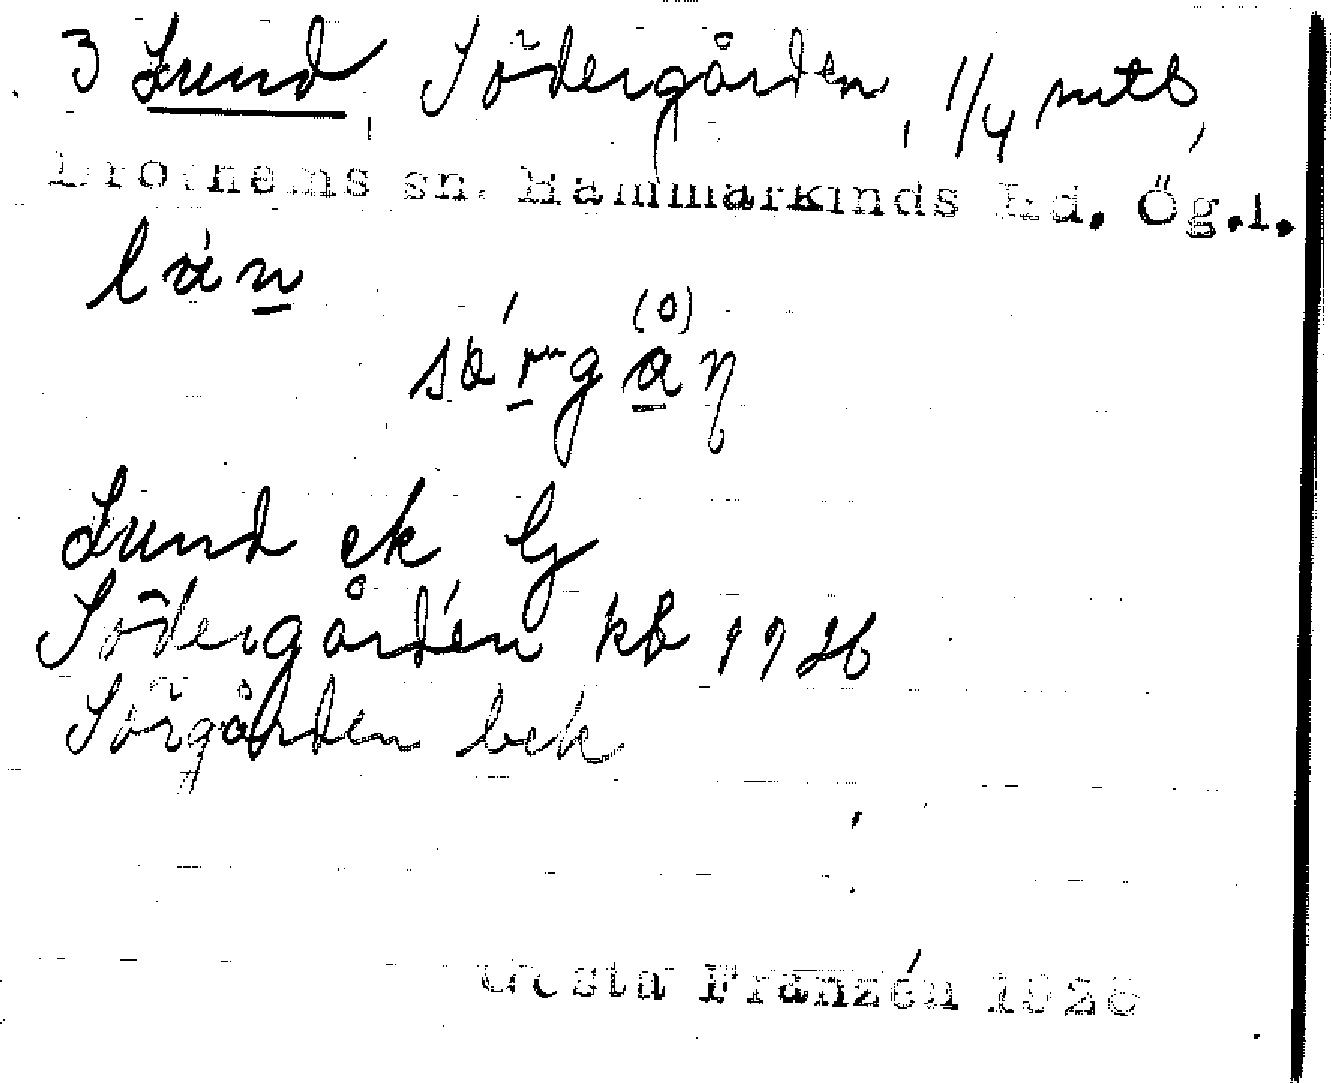 3 Lund, Södergården, 1/4 mtl,
Drothems sn. Hammarkinds hd. Ög.l.
(o)
Lund ek G
Södergården kb 1926
Sörgården bek
Gösta Franzén 1926